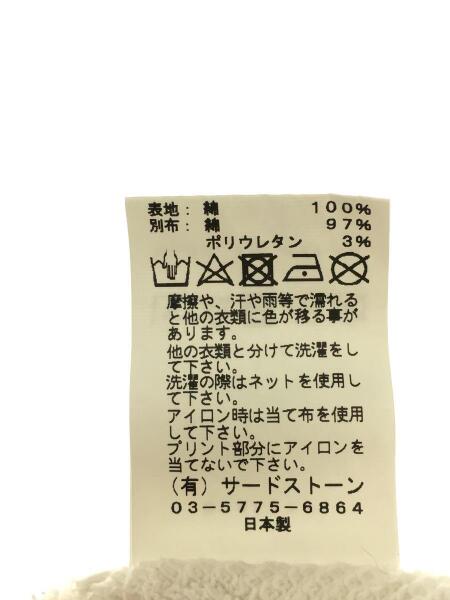 表地： 綿 100%
別布： 綿 97%
ポリウレタン 3%
摩擦や、汗や雨等で濡れる
と他の衣類に色が移る事が
あります。
他の衣類と分けて洗濯をし
て下さい。
洗濯の際はネットを使用し
て下さい。
アイロン時は当て布を使用
して下さい。
プリント部分にアイロンを
当てないで下さい。
（有）サードストーン
03-5775-6864
日本製